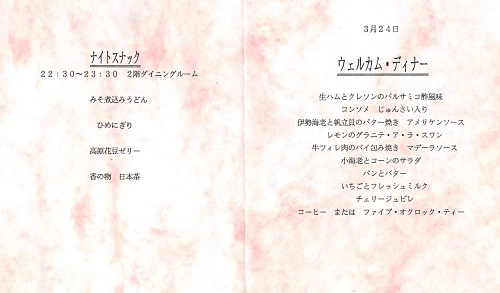 ナイトスナック
22:30～23:30 2階ダイニングルーム
みそ煮込みうどん
ひめにぎり
高原花豆ゼリー
香の物 日本茶
3月24日
ウェルカム・ディナー
生ハムとクレソンのバルサミコ酢風味
コンソメ じゅんさい入り
伊勢海老と帆立貝のバター焼き アメリケンソース
レモンのグラニテ・ア・ラ・スワン
牛フィレ肉のパイ包み焼き マデーラソース
小海老とコーンのサラダ
パンとバター
いちごとフレッシュミルク
チェリージュビレ
コーヒー または ファイブ・オクロック・ティー